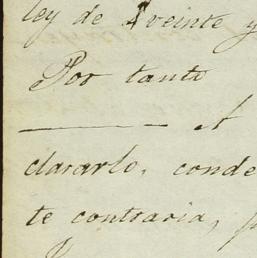 ley de veinte y
Por tanto
A
clararlo, conde
te contraria,